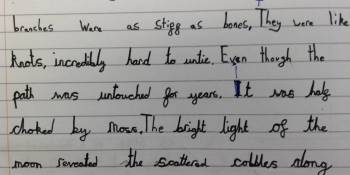 branches were as stigg as bones, They were like
knots, incredibly hard to untie. Even though the
path was untouched for years. It was half
choked by moss. The bright light of the
moon revealed the scattered cobbles along